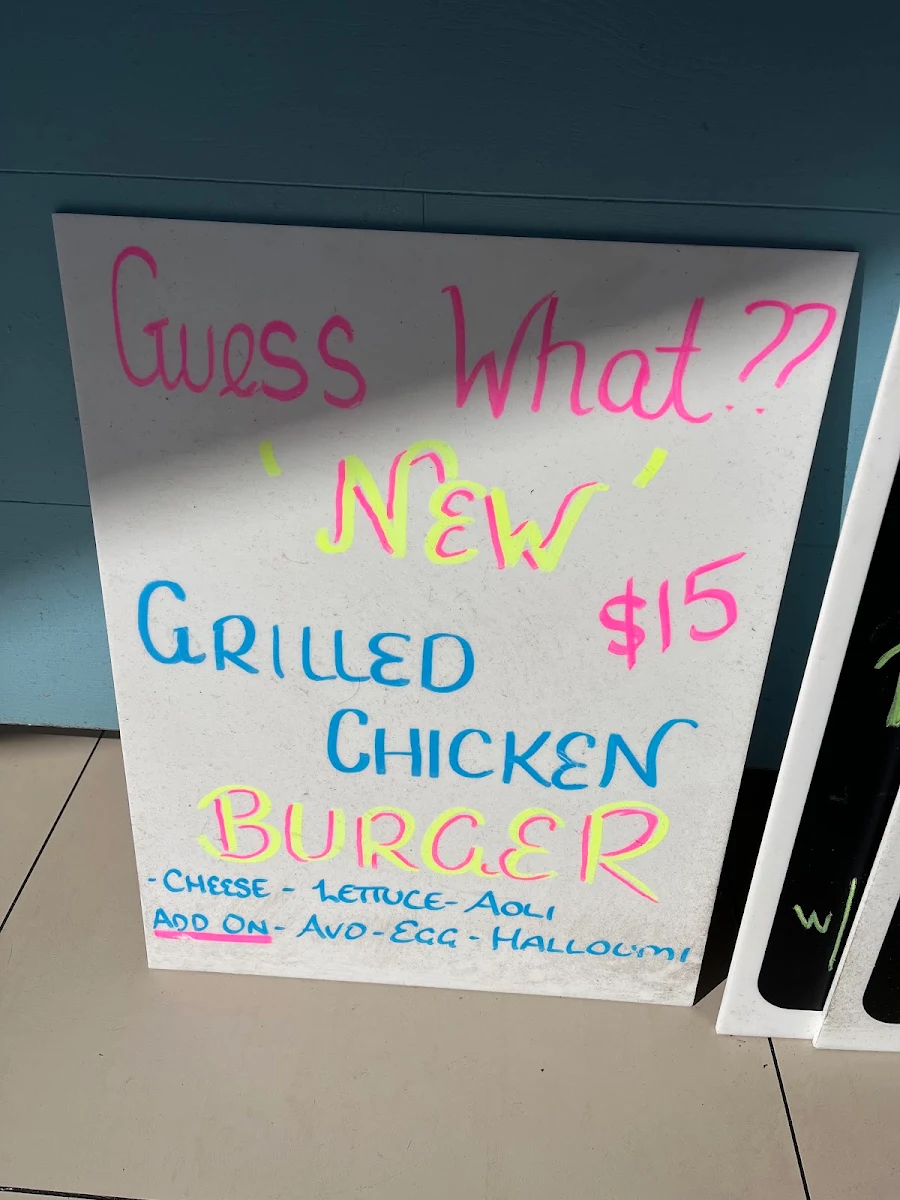 Guess What??
'NEW'
$15
GRILLED
CHICKEN
BURGER
-CHEESE - LETTUCE - AOLI
ADD ON - AVO - EGG - HALLOUMI
w/